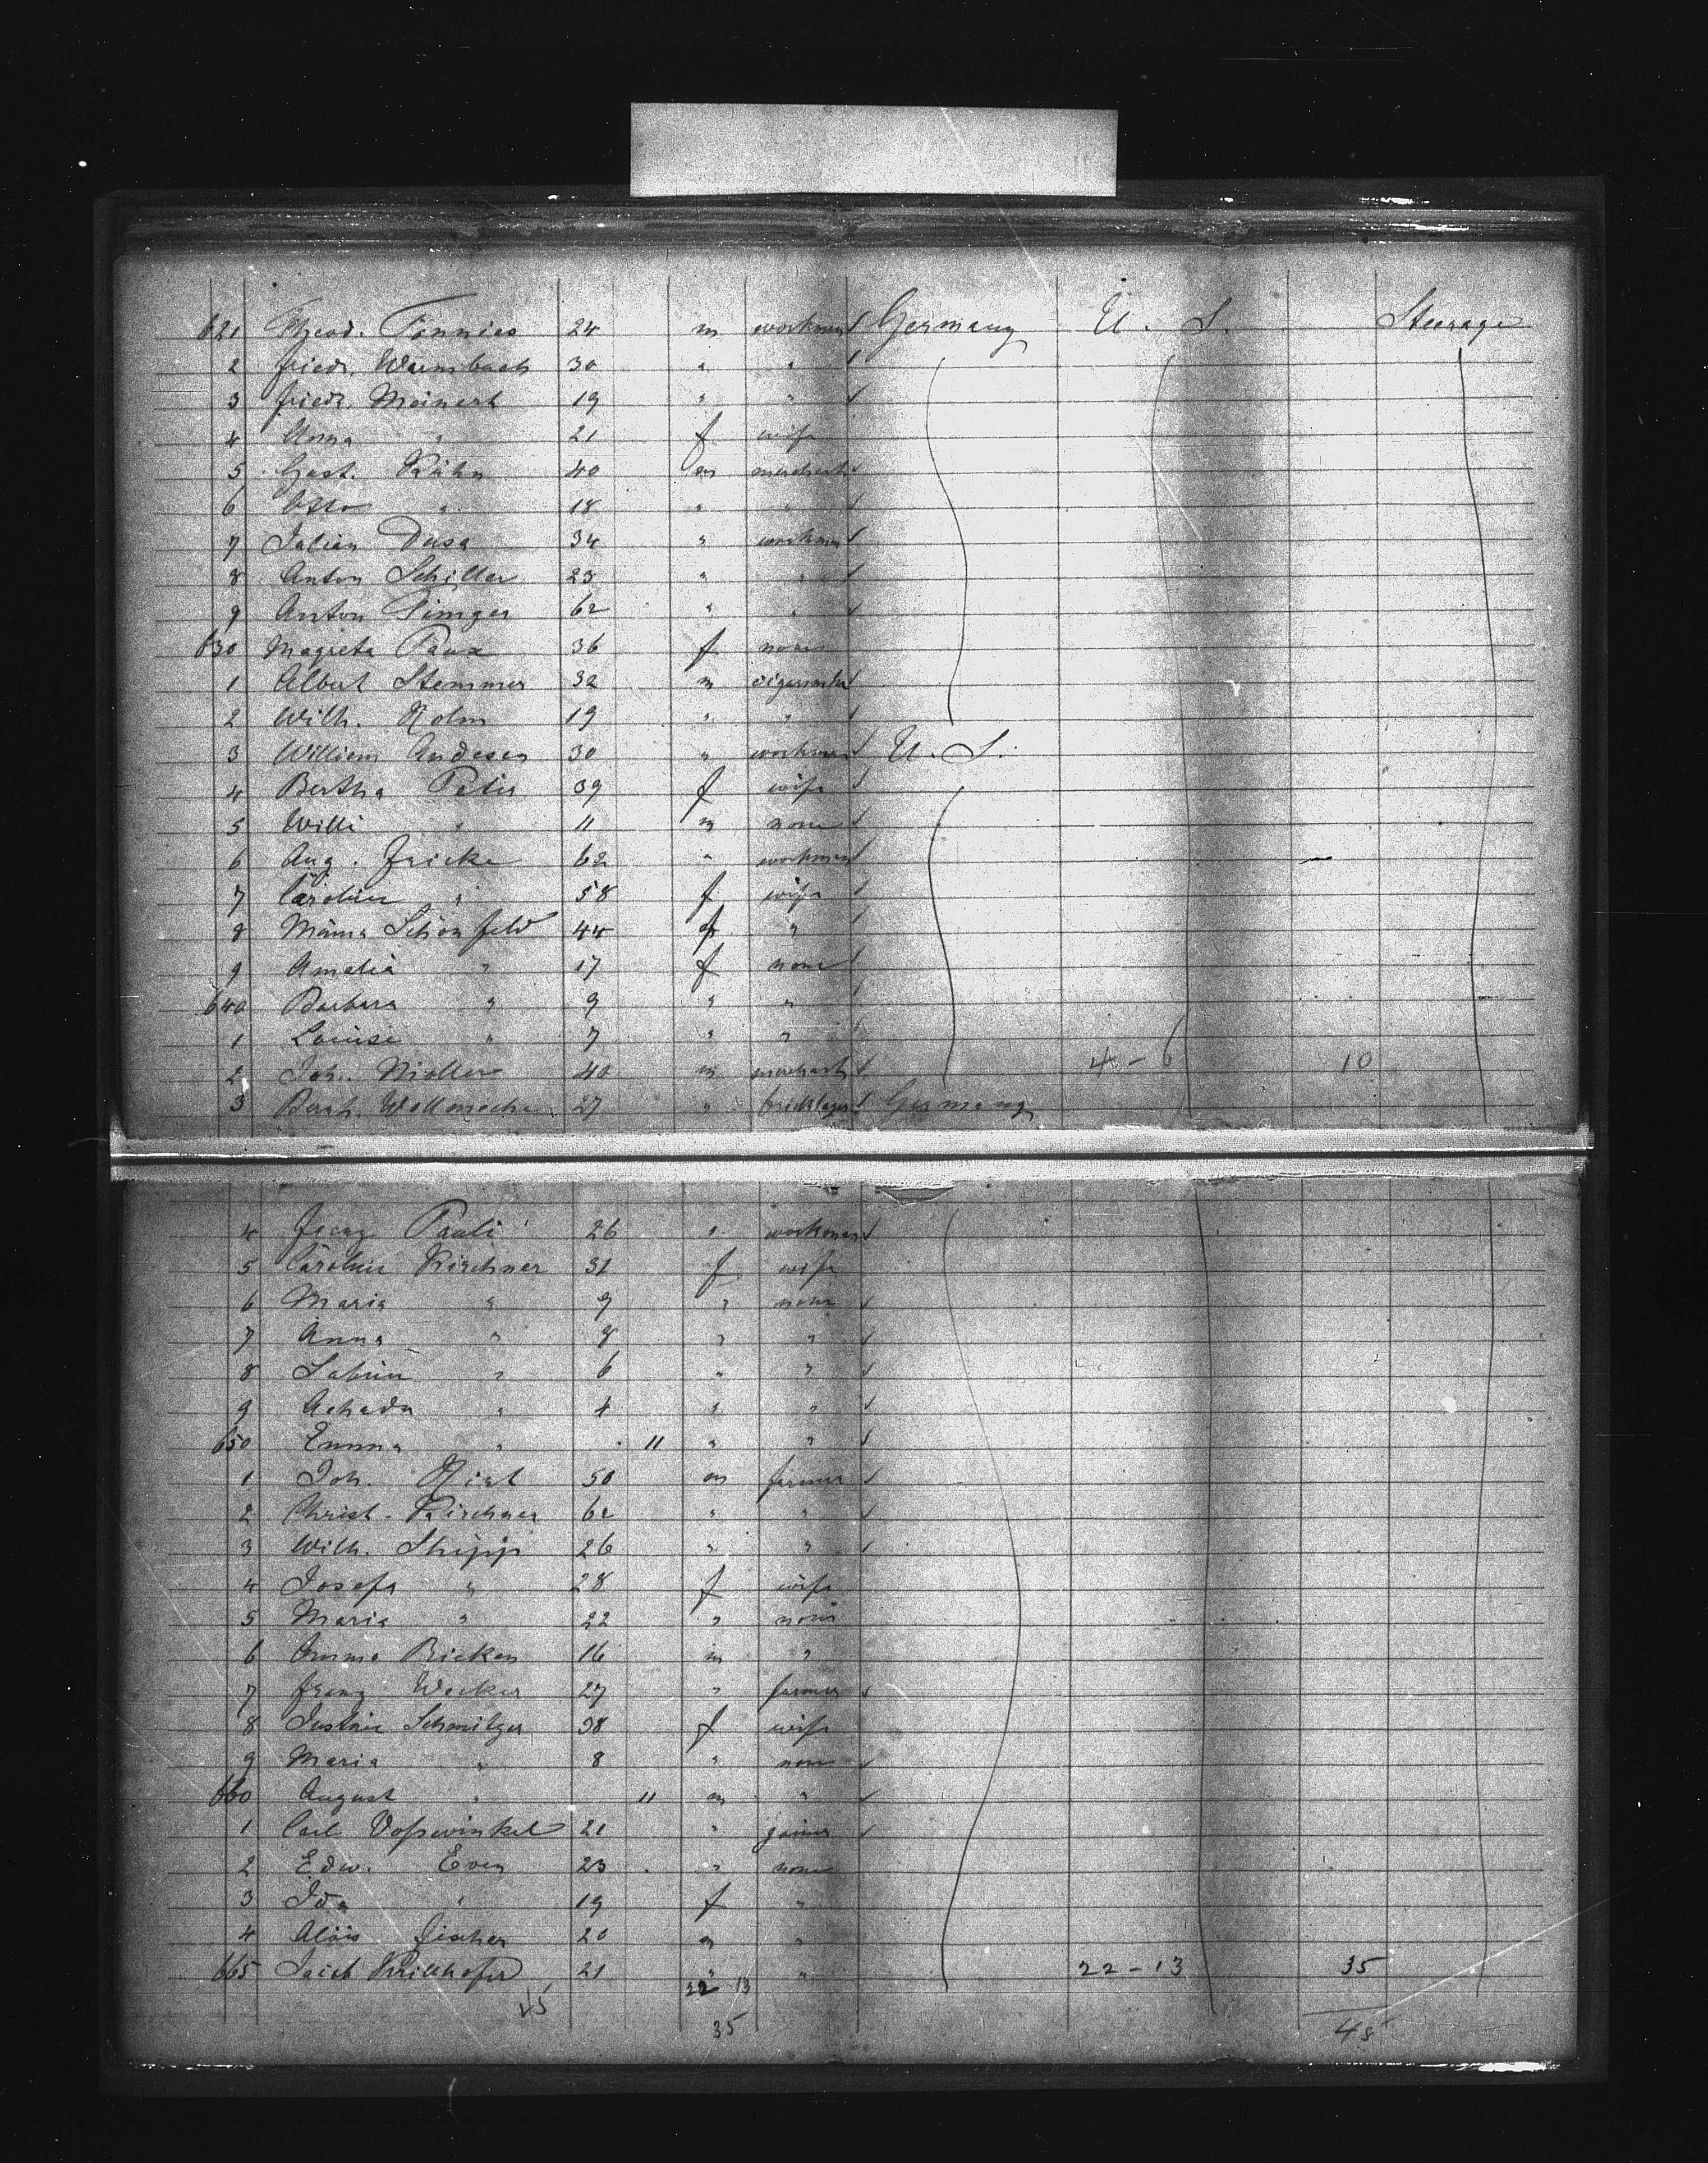 621 Theod. Tönnies 24 m workman Germany U. S. Steerage
2 Friedr. 30 " "
3 Friedr. Meinert 19 " "
4 Anna " 21 f wife
5 Gust. Kühn 40 m merchant
6 Otto " 18 " "
7 Julian Dusa 34 " workman
8 Anton Schiller 23 " "
9 Anton 62 " "
630 Magreta 36 f none
1 Albert Stemmer 32 m
2 Wilh. Holm 19 " "
3 William Andesen 30 " workman U. S.
4 Bertha Peter 39 f wife
5 Willi " 11 m none
6 Aug. Fricke 62 " workman
7 Carolin " 58 f wife
8 Schönfeld 44 f "
9 Amalia " 17 f none
640 Barbara " 9 " "
1 Louise " 7 " "
2 Joh. Möller 40 m merchant 4-6 10
3 27 " bricklayer Germany
4 Franz Pauli 26 " workman
5 Carolin Kirchner 31 f wife
6 Maria " 9 " none
7 Anna " 8 " "
8 Sabin " 6 " "
9 " 4 " "
650 Emma " 11 " "
1 Joh. 50 m farmer
2 Christ. Kirchner 62 " "
3 Wilh. 26 " "
4 Josefa " 28 f wife
5 Maria " 22 " none
6 16 m "
7 Franz Wecker 27 " farmer
8 Schmitzer 38 f wife
9 Maria " 8 " none
660 August " 11 m "
1 Carl Voßwinkel 21 " joiner
2 Edw. Even 23 " none
3 Ida " 19 f "
4 Alois Fischer 20 m "
665 21 " " 22-13 35
22 13
45 35 45